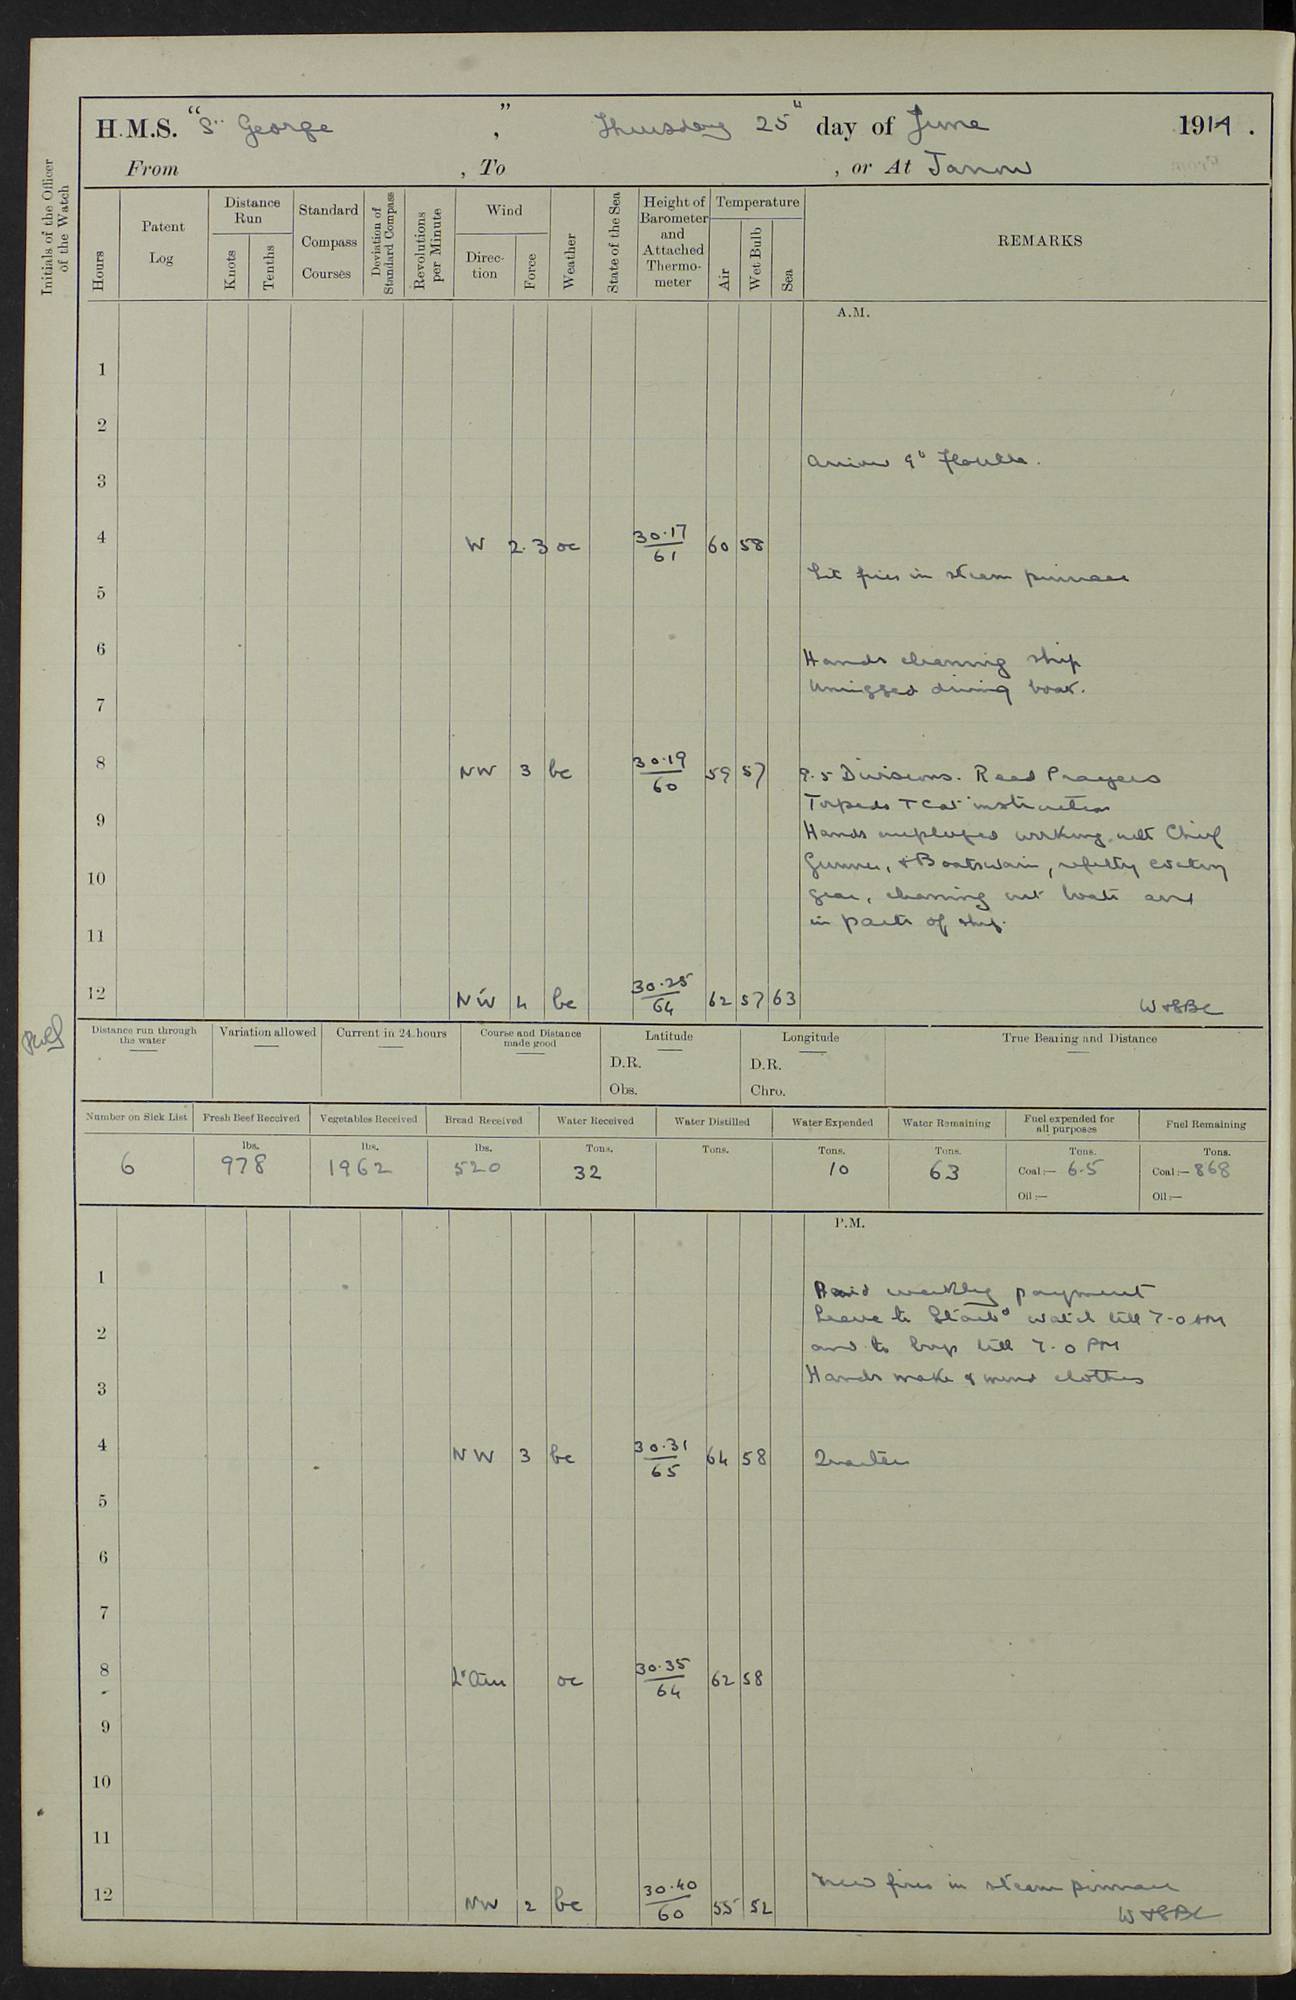 H.M.S. "St George", Thursday 25th day of June 1914.
From , To , or At Jarrow
Initials of the Officer of the Watch
Hours
Patent Log
Distance Run
Knots
Tenths
Standard Compass Courses
Deviation of Standard Compass
Revolutions per Minute
Wind
Direction
Force
Weather
State of the Sea
Height of Barometer and Attached Thermometer
Temperature
Air
Wet Bulb
Sea
REMARKS
A.M.
1
2
3
4 W 2.3 oc 30.17/61 60 58
Lit fires in steam pinnace
5
6
Hands cleaning ship
Unrigged diving boat.
7
8 NW 3 bc 30.19/60 59 57 9.5 Divisions. Read Prayers
Torpedo & Cat instruction
9
Hands employed working with Chief
Gunner, & Boatswain, refitting coaling
10
gear, cleaning out boats and
in parts of ship.
11
12 NW 4 bc 30.25/64 62 57 63
Distance run through the water
Variation allowed
Current in 24 hours
Course and Distance made good
Latitude
D.R.
Obs.
Longitude
D.R.
Chro.
True Bearing and Distance
Number on Sick List
Fresh Beef Received
Vegetables Received
Bread Received
Water Received
Water Distilled
Water Expended
Water Remaining
Fuel expended for all purposes
Fuel Remaining
6
lbs. 978
lbs. 1962
lbs. 520
Tons. 32
Tons.
Tons. 10
Tons. 63
Tons. Coal:— 6.5
Oil:—
Tons. Coal:— 868
Oil:—
P.M.
1
Paid weekly payment
Leave to Starbd watch till 7-0 AM
2
and to boys till 7.0 PM
3
Hands make & mend clothes
4 NW 3 bc 30.31/65 64 58 Quarters
5
6
7
8 Lt Airs oc 30.35/64 62 58
9
10
11
12 NW 2 bc 30.40/60 55 52
fires in steam pinnace